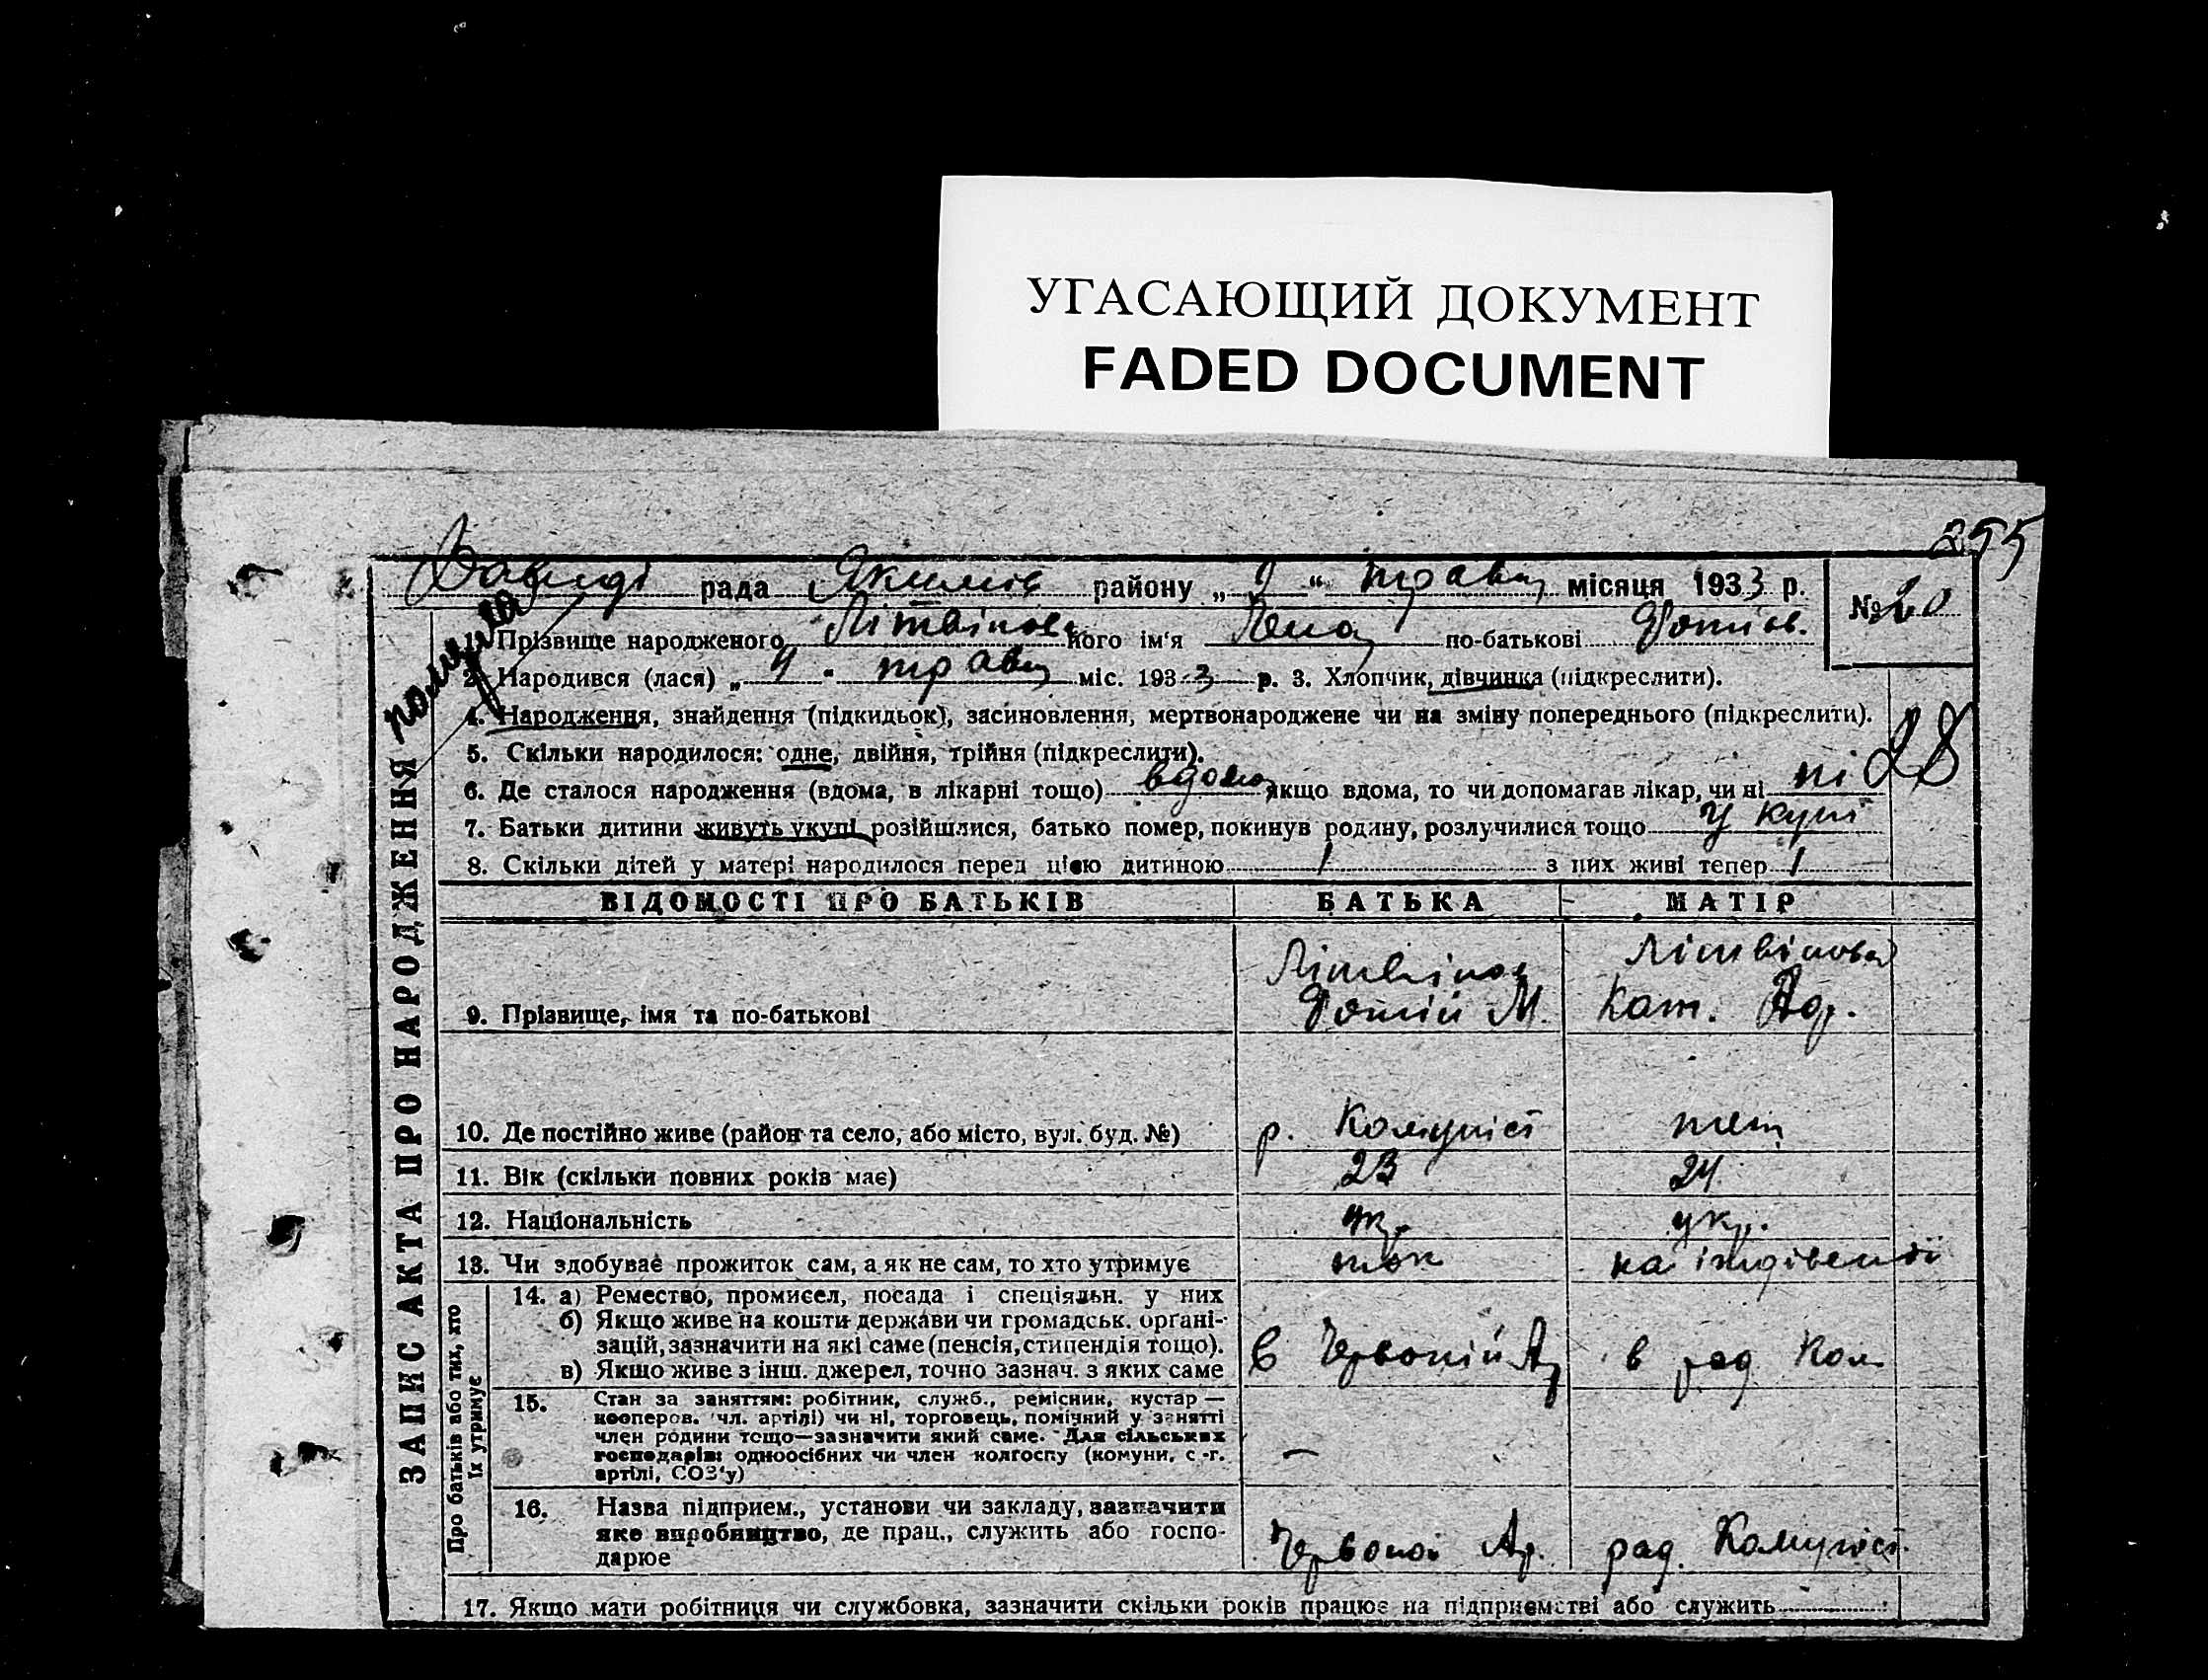 УГАСАЮЩИЙ ДОКУМЕНТ
FADED DOCUMENT
255
Давиді рада Якимів району „9“ травня місяця 1933 р.
№ 20
померла
ЗАПИС АКТА ПРО НАРОДЖЕННЯ
1. Прізвище народженого Літвінова його ім'я Лена по-батькові Фотіев.
2. Народився (лася) „4“ травня міс. 1933 р. 3. Хлопчик, дівчинка (підкреслити).
4. Народження, знайдення (підкидьок), засиновлення, мертвонароджене чи на зміну попереднього (підкреслити).
28
5. Скільки народилося: одне, двійня, трійня (підкреслити).
6. Де сталося народження (вдома, в лікарні тощо) вдома якщо вдома, то чи допомагав лікар, чи ні ні
7. Батьки дитини живуть укупі, розійшлися, батько помер, покинув родину, розлучилися тощо у купі
8. Скільки дітей у матері народилося перед цією дитиною 1 з них живі тепер 1
ВІДОМОСТІ ПРО БАТЬКІВ БАТЬКА МАТІР
Літвінов Літвінова
9. Прізвище, імя та по-батькові Фотій М. Кат. Андр.
10. Де постійно живе (район та село, або місто, вул. буд. №) р. Комуніст теж
11. Вік (скільки повних років має) 23 24
12. Національність укр. укр.
13. Чи здобуває прожиток сам, а як не сам, то хто утримує на іждівенії
Про батьків або тих, хто їх утримує
14. а) Ремество, промисел, посада і спеціяльн. у них
б) Якщо живе на кошти держави чи громадськ. органі-
зацій, зазначити на які саме (пенсія, стипендія тощо).
в) Якщо живе з інш. джерел, точно зазнач. з яких саме в Червоній Ар в рад. Ком.
15. Стан за заняттям: робітник, служб., ремісник, кустар —
кооперов. чл. артілі) чи ні, торговець, помічний у занятті
член родини тощо—зазначити який саме. Для сільських
господарів: одноосібних чи член колгоспу (комуни, с.-г.
артілі, СОЗ'у) —
16. Назва підприєм., установи чи закладу, зазначити
яке виробництво, де прац., служить або госпо-
дарює Червоної Ар. рад. Комуніст.
17. Якщо мати робітниця чи службовка, зазначити скільки років працює на підприємстві або служить